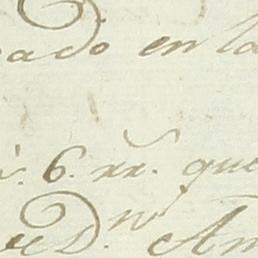 ado en la
6. rr. que
D.n An